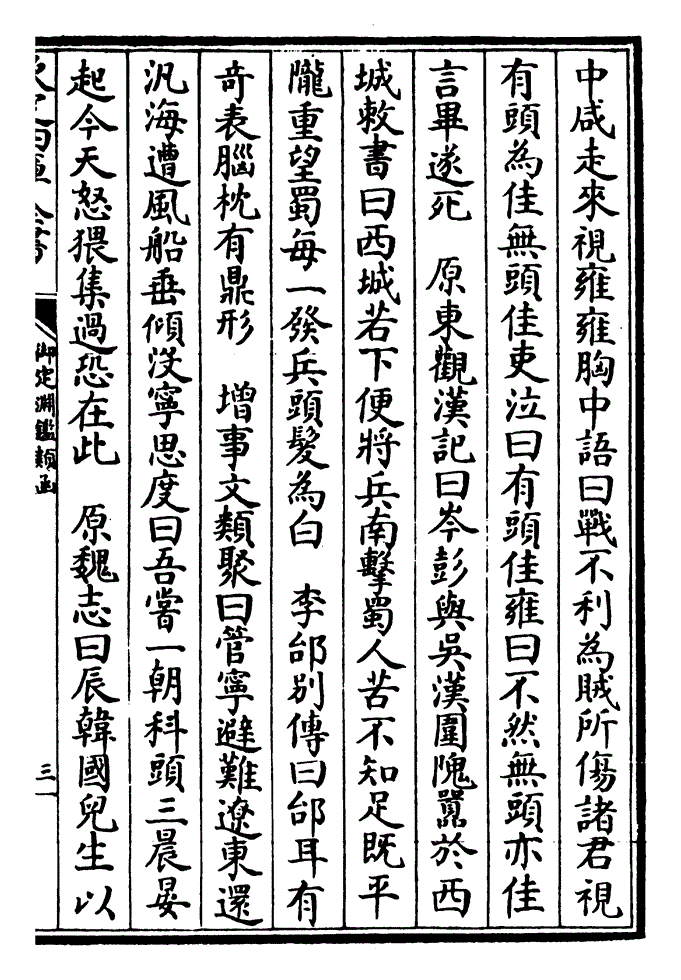 中咸走來視雍雍胸中語曰戰不利為賊所傷諸君視
有頭為佳無頭佳吏泣曰有頭佳雍曰不然無頭亦佳
言畢遂死　原東觀漢記曰岑彭與吳漢圍隗囂於西
城敕書曰西城若下便將兵南擊蜀人苦不知足既平
隴重望蜀每一發兵頭髮為白　李郃別傳曰郃耳有
奇表腦枕有鼎形　增事文類聚曰管寧避難遼東還
汎海遭風船垂傾沒寧思度曰吾嘗一朝科頭三晨晏
起今天怒猥集過恐在此　原魏志曰辰韓國兒生以
御定淵鑑類函